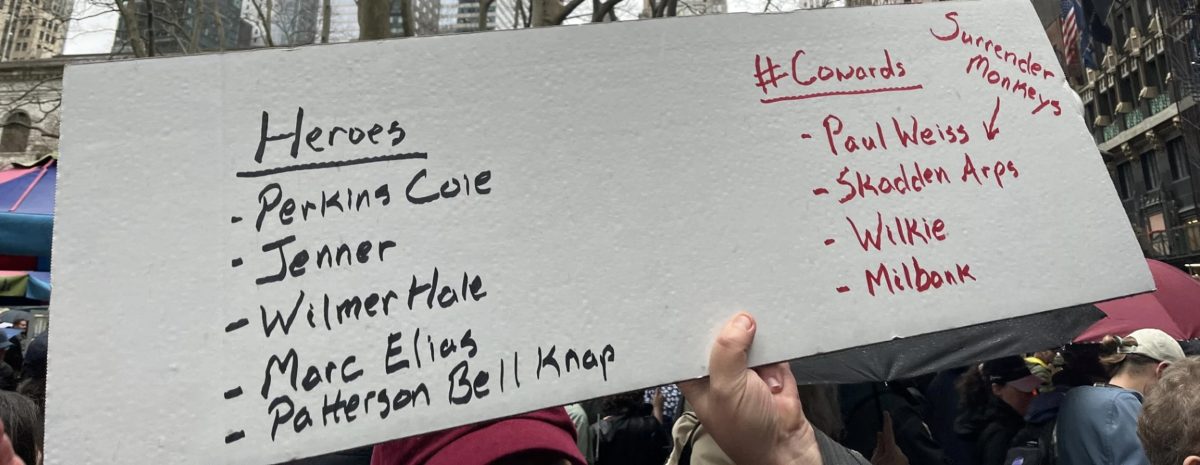 Heroes
- Perkins Coie
- Jenner
- WilmerHale
- Marc Elias
- Patterson Bell Knap
#Cowards
Surrender
Monkeys
- Paul Weiss
- Skadden Arps
- Wilkie
- Milbank